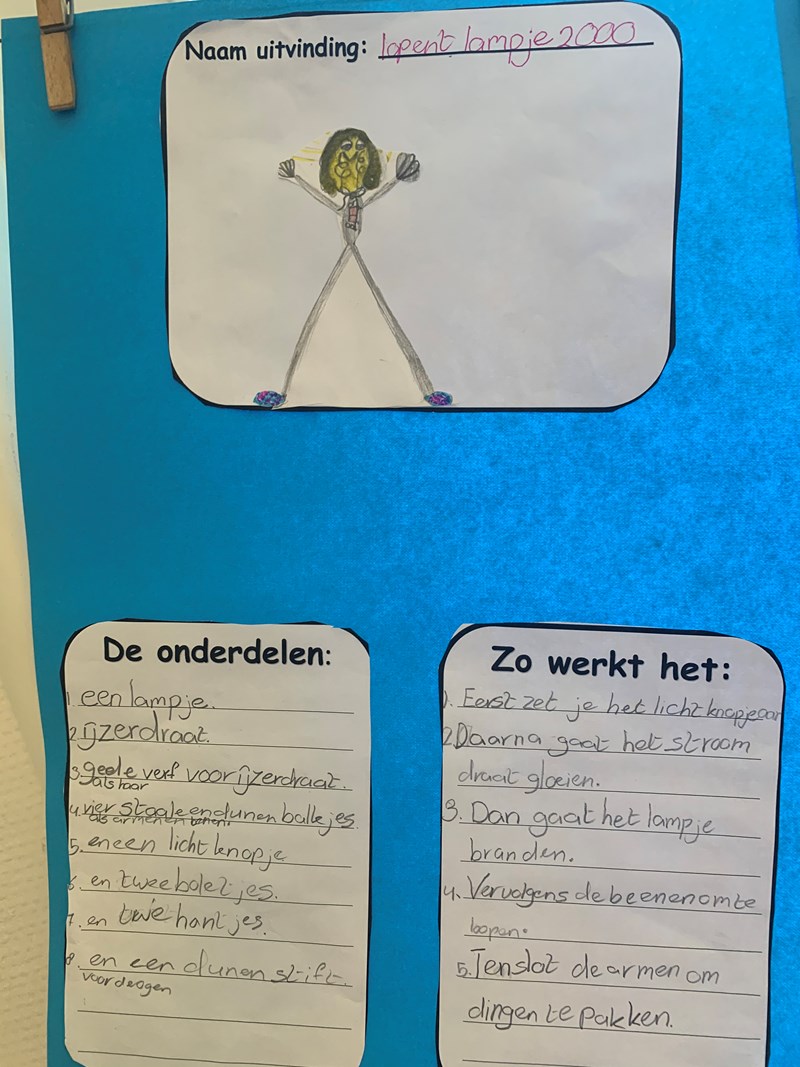 Naam uitvinding: lopent lampje 2000
De onderdelen:
1 een lampje.
2. ijzerdraat.
3. geele verf voor ijzerdraat.
als haar
4. vier staale en dunen balkjes.
als armen en benen.
5. en een licht knopje
6. en twee boletjes.
7. en twie hantjes.
8. en een dunen stift.
voor deogen
Zo werkt het:
1. Eerst zet je het licht knopje aan
2 Daarna gaat het stroom
draat gloeien.
3. Dan gaat het lampje
branden.
4. Vervolgens de beenen om te
loopen.
5. Tenslot de armen om
dingen te pakken.